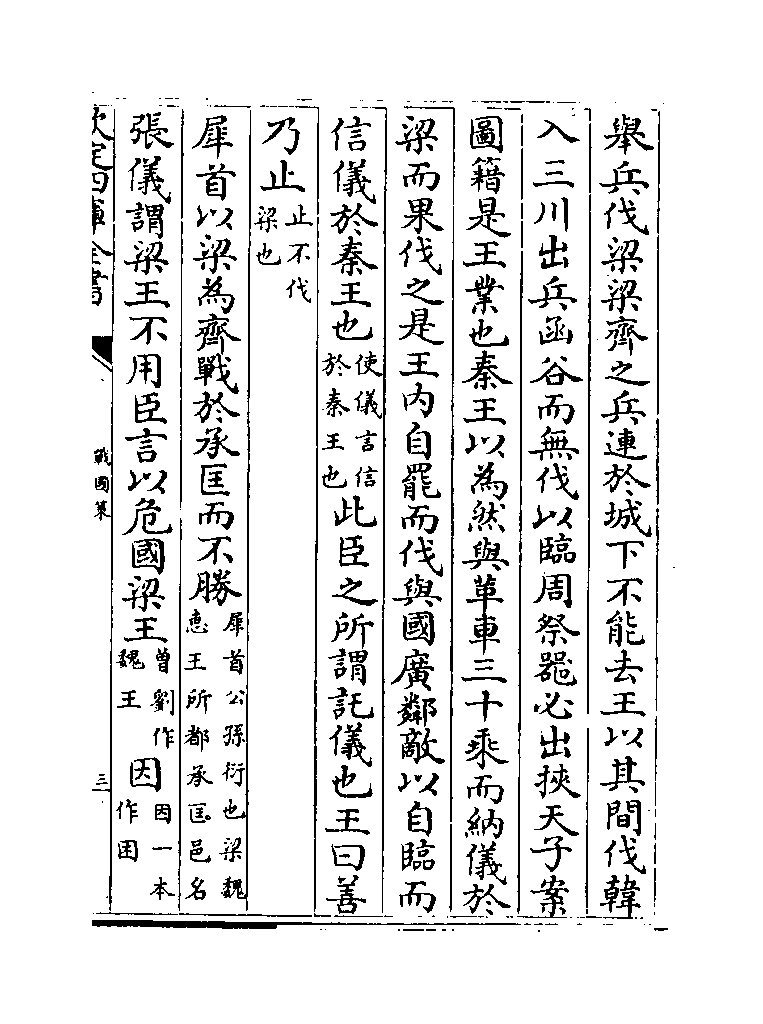 舉兵伐梁梁齊之兵連於城下不能去王以其間伐韓
入三川出兵函谷而無伐以臨周祭器必出挾天子案
圖籍是王業也秦王以為然與革車三十乘而納儀於
梁而果伐之是王内自罷而伐與國廣鄰敵以自臨而
信儀於秦王也使儀言信於秦王也此臣之所謂託儀也王曰善
乃止止不伐梁也
犀首以梁為齊戰於承匡而不勝犀首公孫衍也梁魏惠王所都承匡邑名
張儀謂梁王不用臣言以危國梁王曾劉作魏王因因一本作困
欽定四庫全書
戰國策
三